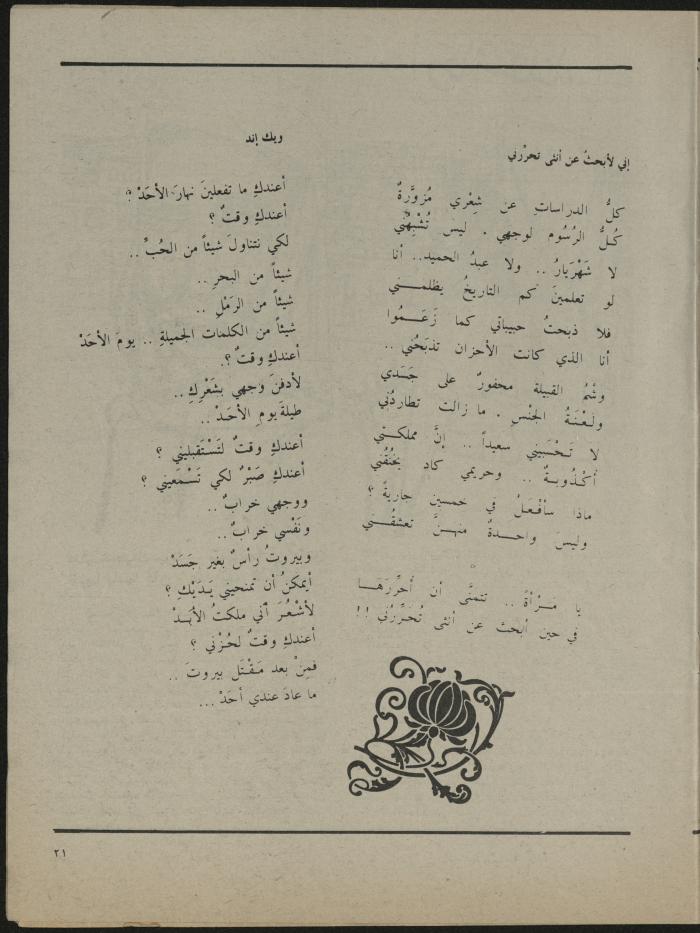 إني لأبحثُ عن أنثى تحرّرني
كلُّ الدراساتِ عن شِعْري مُزوَّرةٌ
كُلُّ الرُسُوم لوجهي . ليس تُشْبِهُني
لا شَهْرَيارُ .. ولا عبدُ الحميد.. أنا
لو تعلمينَ كم التاريخُ يظلمــني
فلا ذبحتُ حبيباتي كما زَعَــمُوا
أنا الذي كانت الأحزان تذبَحُني ..
وشْمُ القبيلة محفورٌ على جَسَدي
ولَعْنَةُ الجنْسِ . ما زالت تطاردُني
لا تَحْسَبِيني سعيداً .. إنَّ مملكتي
أُكْذُوبةٌ .. وحريمي كاد يخنُقُني
ماذا سأفْعَلُ في خمسين جاريةً ؟
وليسَ واحــدةٌ منهــنَّ تعشقُــني
يا مَــرْأةً .. تتمنَّى أن أُحرِّرَهَــا
في حين أبحث عن أنثى تُحَرِّرُني !!
ويك إند
أعندكِ ما تفعلينَ نهارَ الأحَدْ ؟
أعندكِ وقتٌ ؟
لكي نتناولَ شيئاً من الحُبِّ ..
شيئاً من البحرِ ..
شيئاً من الرَمْلِ ..
شيئاً من الكلمات الجميلةِ .. يومَ الأحَدْ
أعندكِ وقتٌ ؟.
لأدفنَ وجهي بشَعْرِكِ ..
طيلةَ يومِ الأحَدْ ..
أعندكِ وقتٌ لتَسْتَقبليني ؟
أعندكِ صَبْرٌ لكي تَسْمَعيني ؟
ووجهي خرابٌ ..
ونَفْسي خرابٌ ..
وبيروتُ رأسٌ بغير جَسَدْ
أيمكنُ أن تمنحيني يَدَيْكِ ؟
لأشْعُرَ أنّي ملكتُ الأبَــدْ
أعندكِ وقتٌ لحُزْني ؟
فمِنْ بعد مَقْتَل بيروتَ ..
ما عادَ عندي أحَدْ ...
٢١